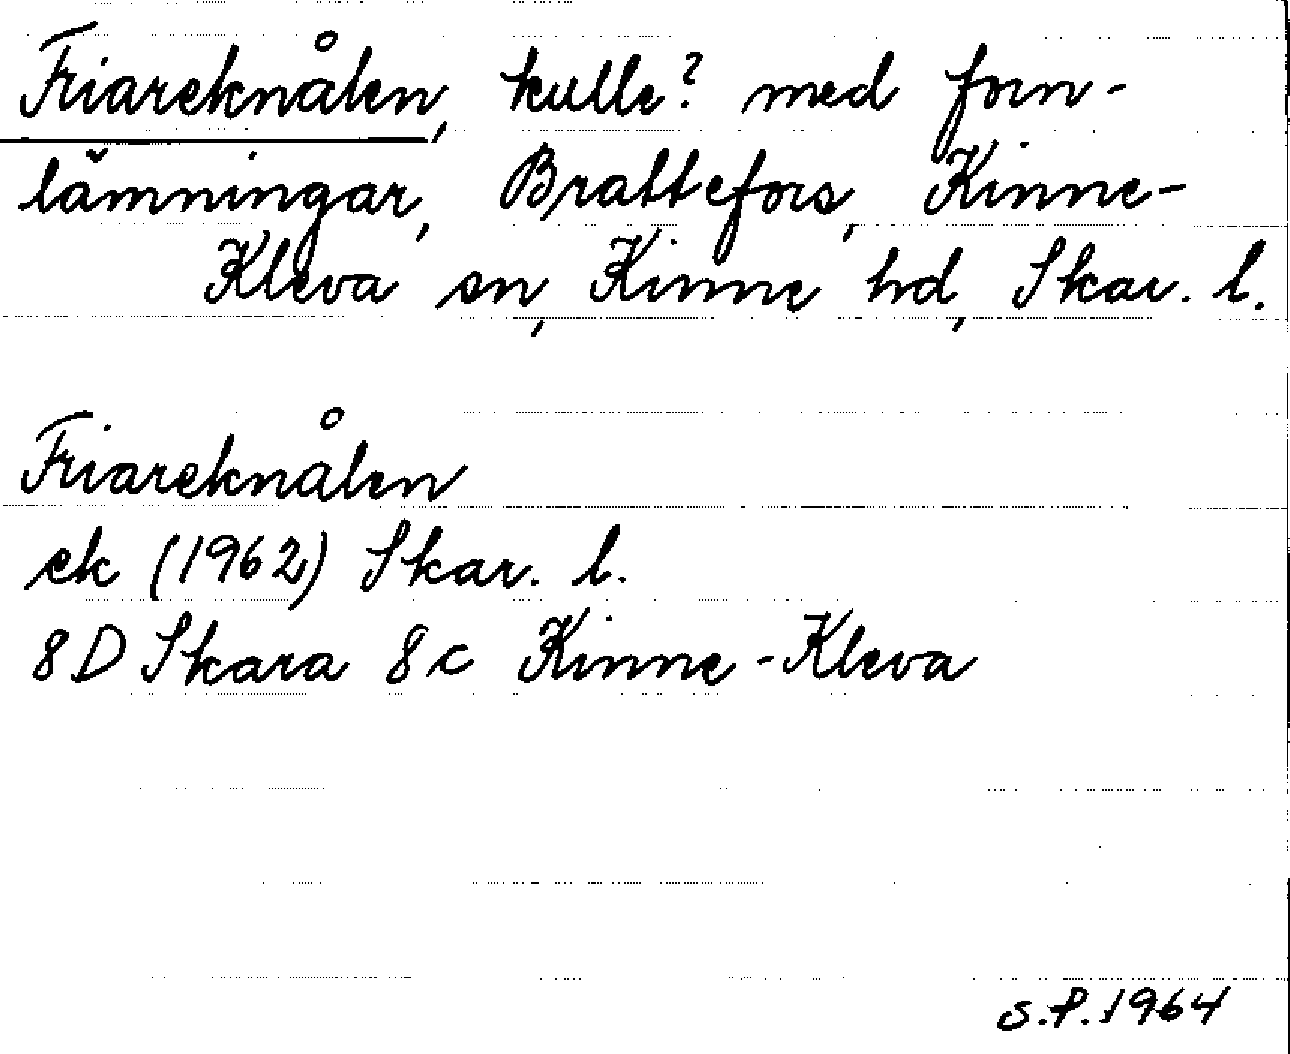 Friareknålen, kulle? med forn-
lämningar, Brattefors, Kinne-
Kleva sn, Kinne hd, Skar. l.
Friareknålen
ek (1962) Skar. l.
8D Skara 8c Kinne-Kleva
S.P. 1964